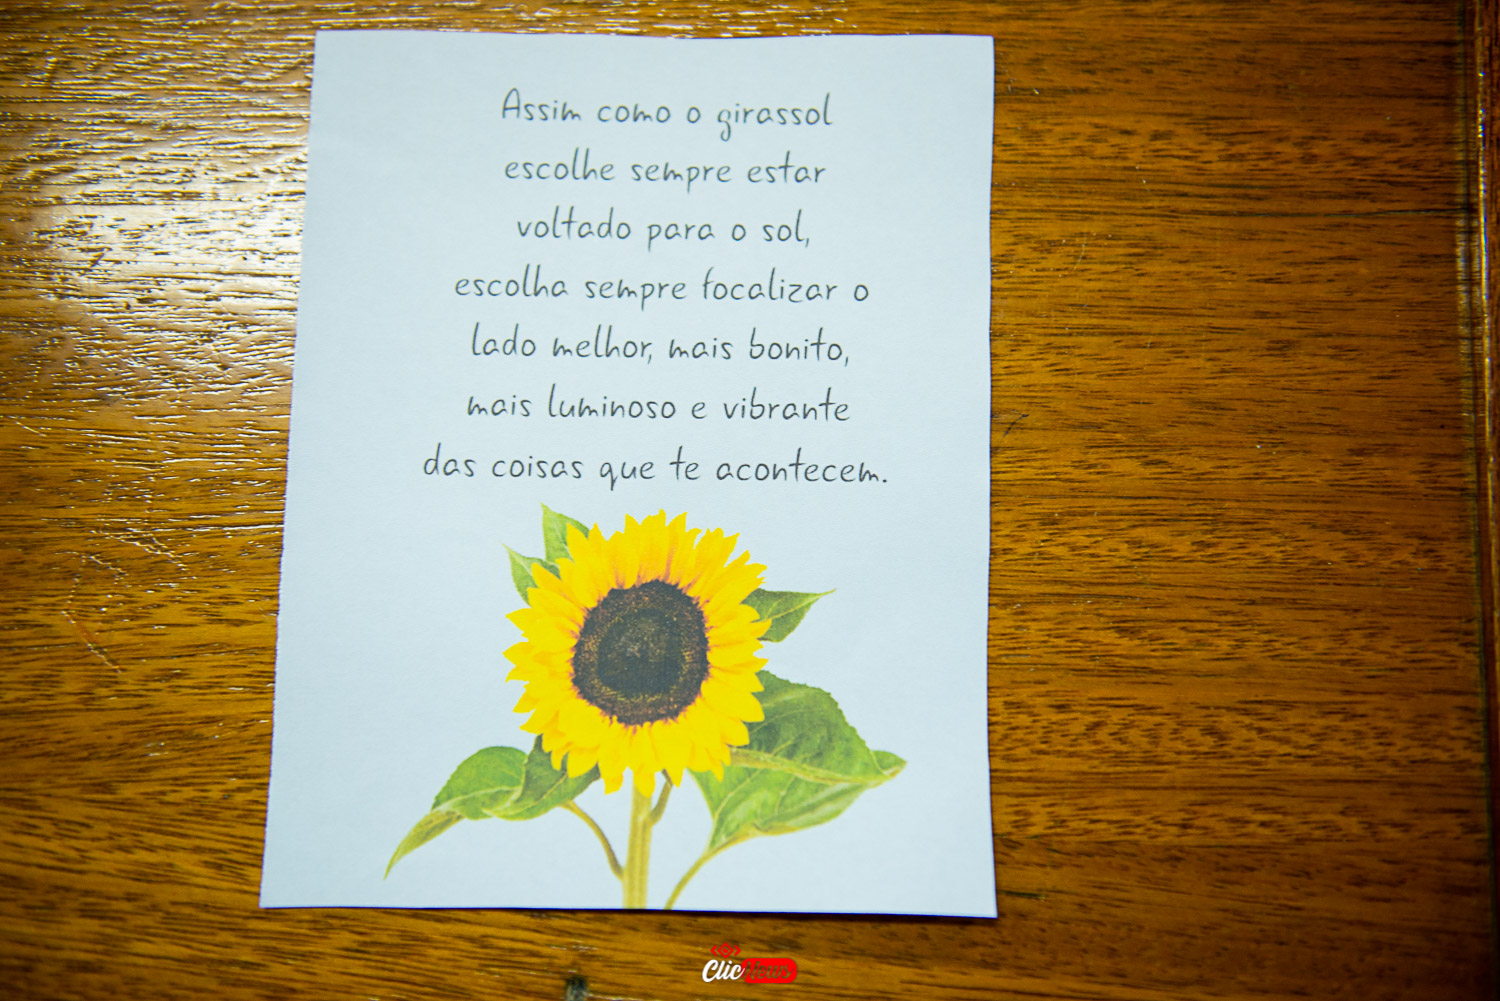 Assim como o girassol
escolhe sempre estar
voltado para o sol,
escolha sempre focalizar o
lado melhor, mais bonito,
mais luminoso e vibrante
das coisas que te acontecem.
ClicNews